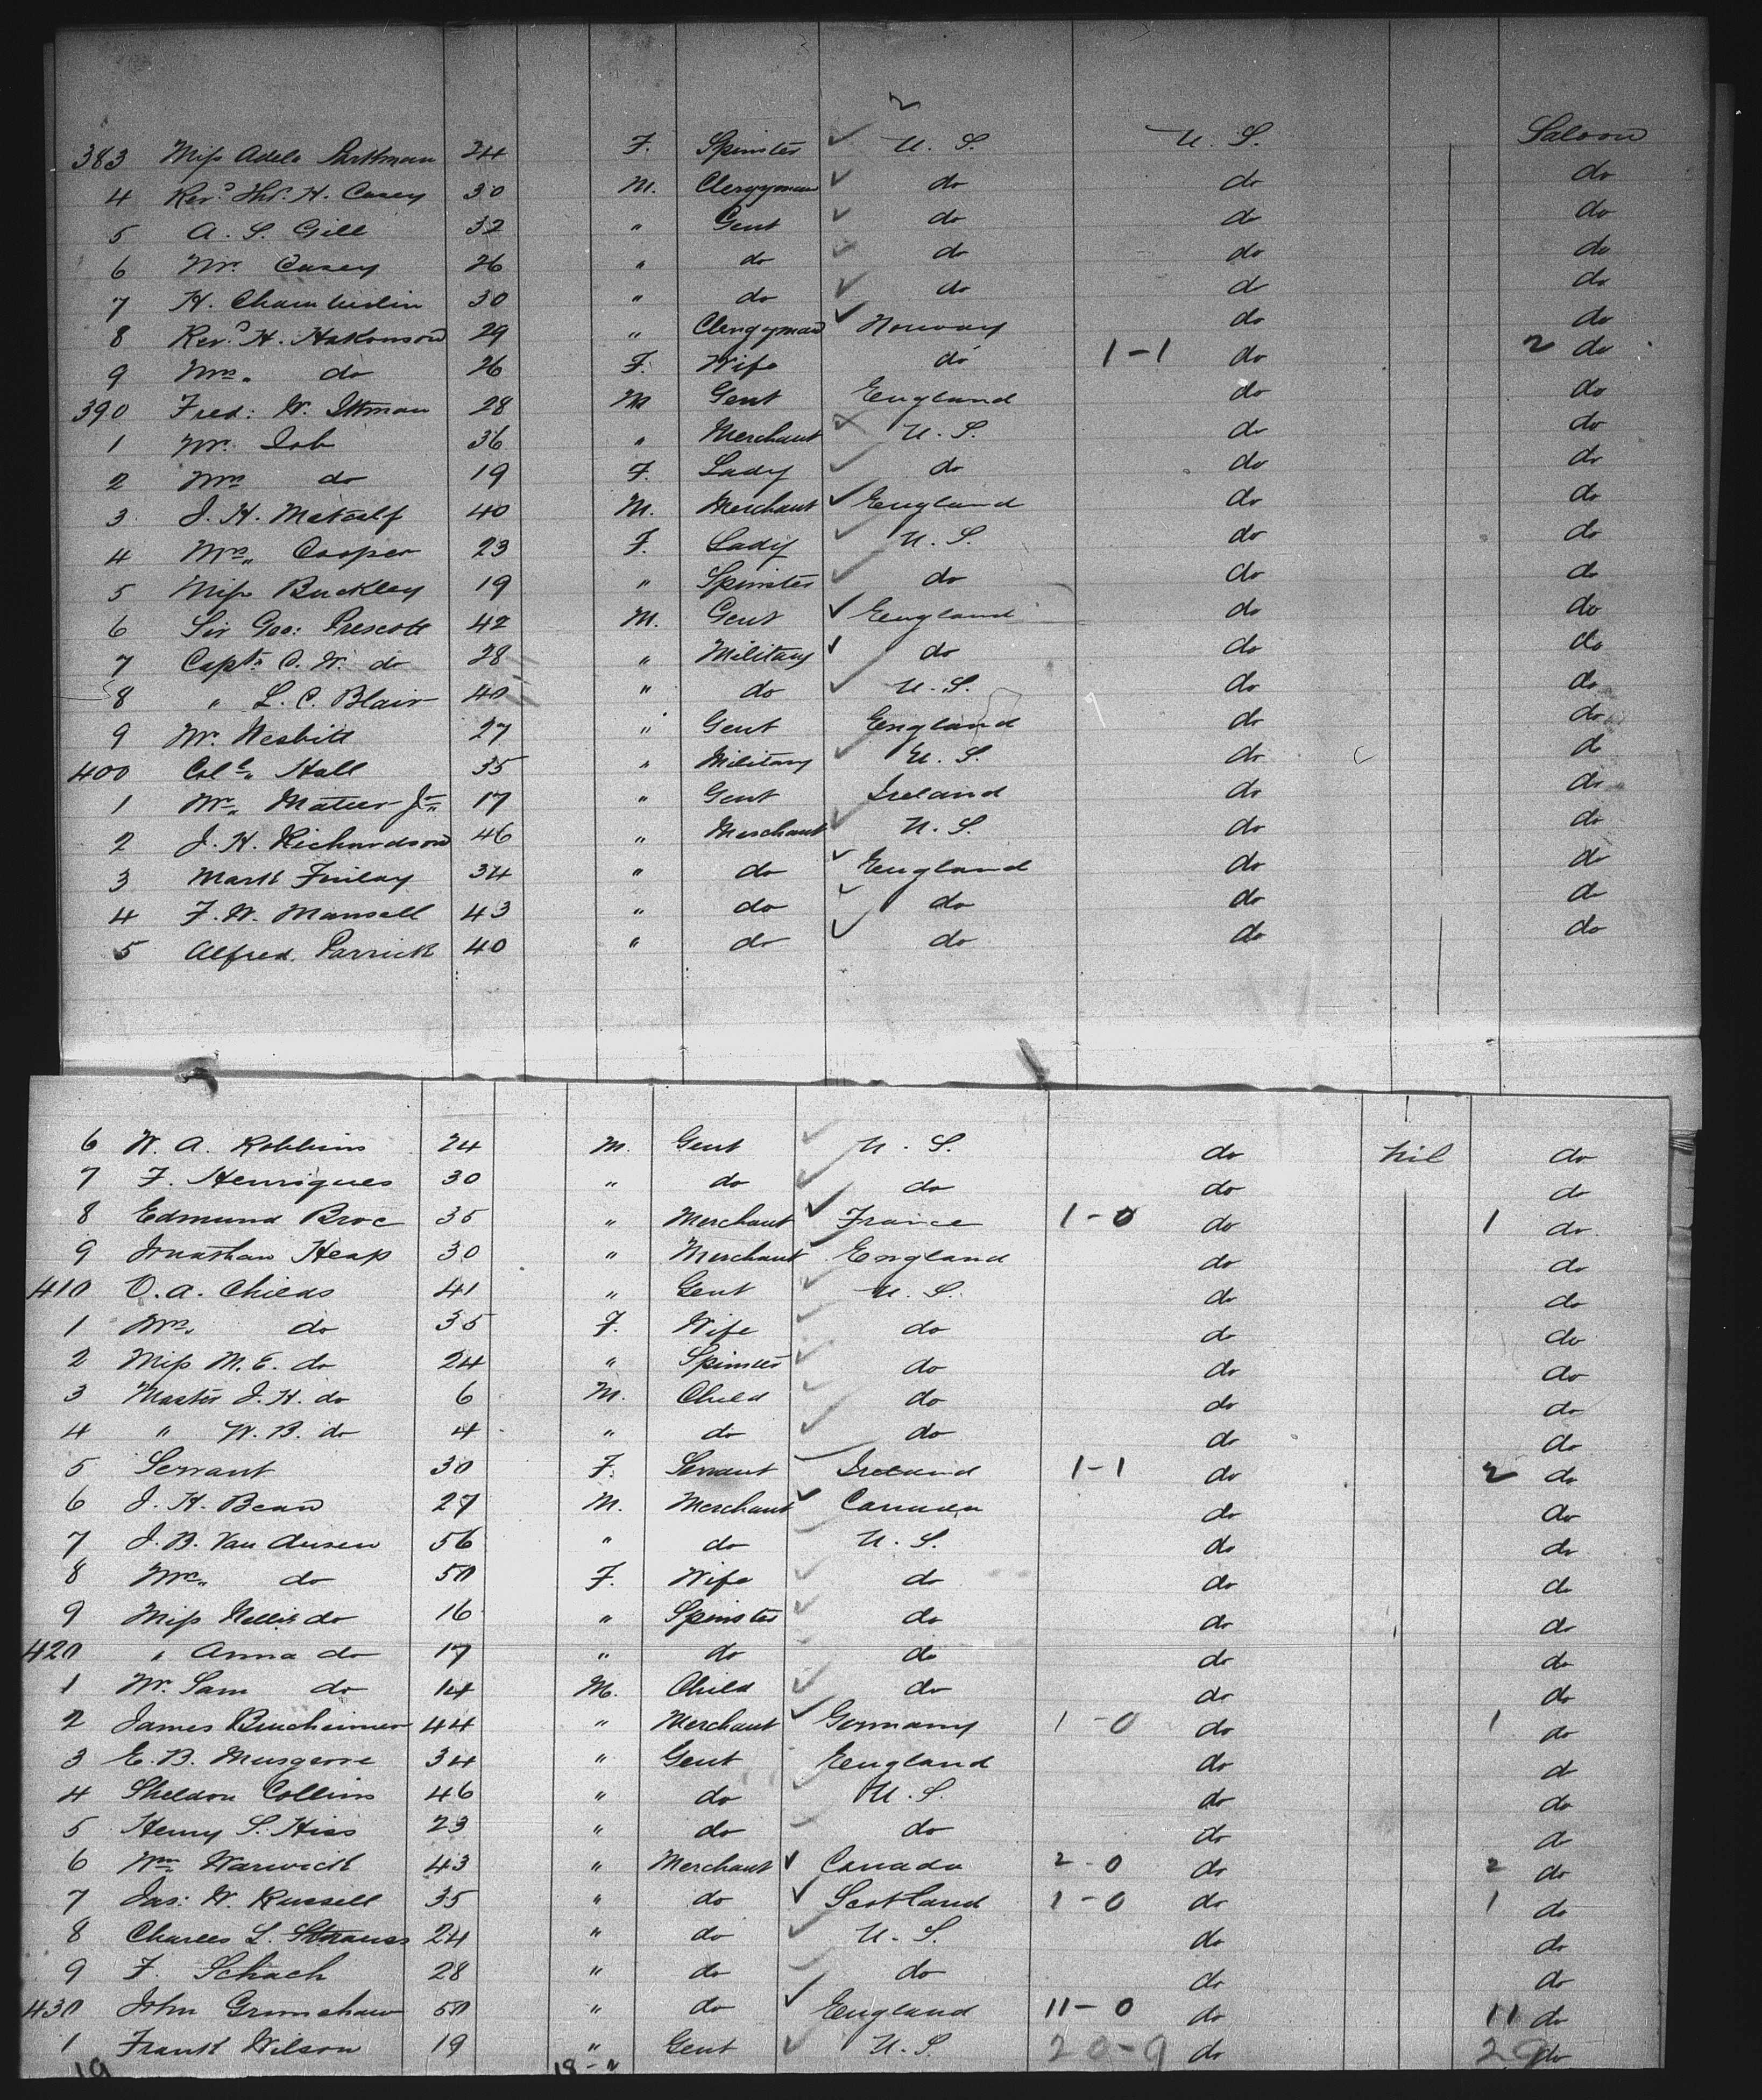 383 Miss Adele Parkman 24 F. Spinster U. S. U. S. Saloon
4 Revd Thos. H. Casey 30 M. Clergyman do do do
5 A. S. Gill 32 " Gent do do do
6 Mr. Casey 26 " do do do do
7 H. Chamberlin 30 " do do do do
8 Revd H. Hakonson 29 " Clergyman Norway do do
9 Mrs. do 26 F. Wife do 1-1 do 2 do
390 Fred: W. Ittman 28 M Gent England do do
1 Mr. Isb 36 " Merchant U. S. do do
2 Mrs do 19 F. Lady do do do
3 J. H. Metcalf 40 M. Merchant England do do
4 Mrs. Cooper 23 F. Lady U. S. do do
5 Miss Buckley 19 " Spinster do do do
6 Sir Geo: Prescott 42 M. Gent England do do
7 Captn C. W. do 28 " Military do do do
8 " L. C. Blair 40 " do U. S. do do
9 Mr. Nesbitt 27 " Gent England do do
400 Coll. Hall 35 " Military U. S. do do
1 Mr. Mateer Jr. 17 " Gent Ireland do do
2 J. H. Richardson 46 " Merchant U. S. do do
3 Mark Finlay 34 " do England do do
4 F. W. Mansell 43 " do do do do
5 Alfred Parrick 40 " do do do do
6 W. A. Robbins 24 M. Gent U. S. do Nil do
7 F. Henriques 30 " do do do do
8 Edmund Broc 35 " Merchant France 1-0 do 1 do
9 Jonathan Heap 30 " Merchant England do do
410 O. A. Childs 41 " Gent U. S. do do
1 Mrs. do 35 F. Wife do do do
2 Miss M. E. do 24 " Spinster do do do
3 Master J. H. do 6 M. Child do do do
4 " W. B. do 4 " do do do do
5 Servant 30 F. Servant Ireland 1-1 do 2 do
6 J. H. Bean 27 M. Merchant Canada do do
7 J. B. Van Dusen 56 " do U. S. do do
8 Mrs. do 50 F. Wife do do do
9 Miss Nellie do 16 " Spinster do do do
420 " Anna do 17 " do do do do
1 Mr. Sam do 14 M. Child do do do
2 James Bucheimer 44 " Merchant Germany 1-0 do 1 do
3 E. B. Musgrove 34 " Gent England do do
4 Sheldon Collins 46 " do U. S. do do
5 Henry S. Hiss 23 " do do do do
6 Wm Warwick 43 " Merchant Canada 2-0 do 2 do
7 Jas: W. Russell 35 " do Scotland 1-0 do 1 do
8 Charles L. Strauss 24 " do U. S. do do
9 F. Schach 28 " do do do do
430 John Grimshaw 50 " do England 11-0 do 11 do
1 Frank Wilson 19 " Gent U. S. 20-9 do 29 do
19 18-